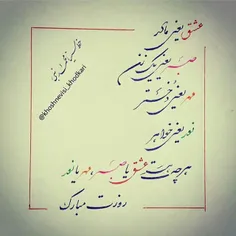 عشق یعنی مادر
صبر یعنی یک زن
مهر یعنی دختر
نور یعنی خواهر
هرچه هست عشق یا صبر، مهر یا نور
روزت مبارک
@khoshnevisi_khodkari